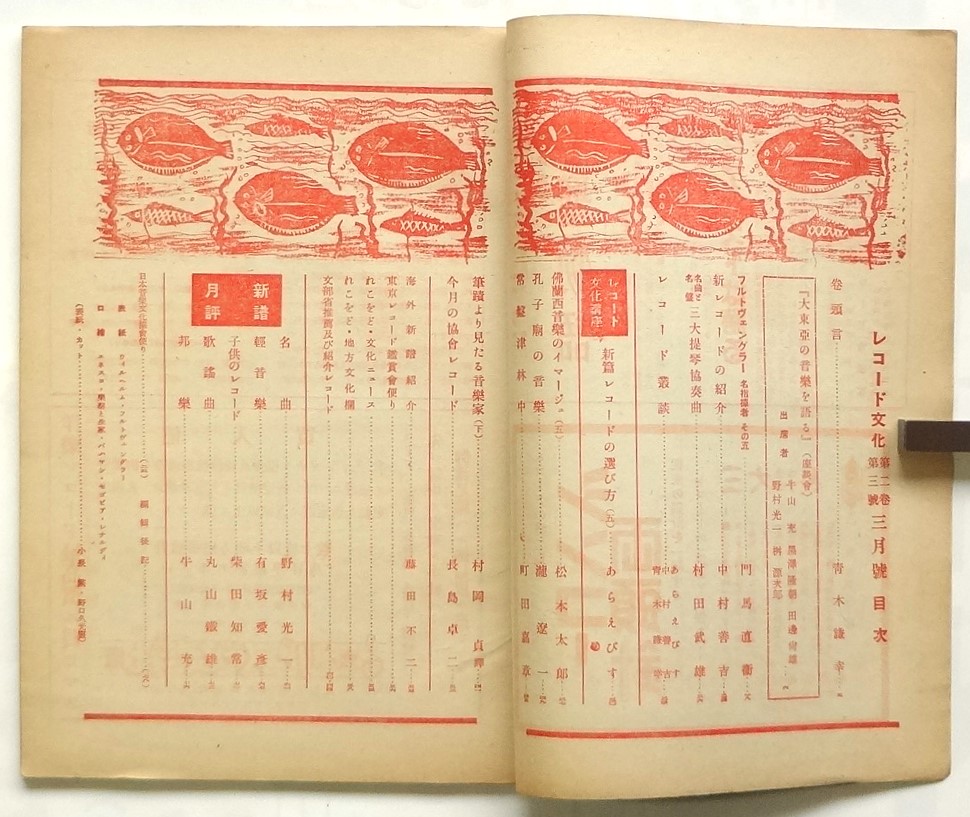 レコード文化 第二卷 第三號 三月號 目次
卷頭言 青木謙幸
『大東亞の音樂を語る』(座談會)
出席者 牛山充 黑澤隆朝 田邊尙雄
野村光一 桝源次郎
フルトヴェングラー 名指揮者 その五 門馬直衞
新レコードの紹介 中村善吉
名曲と名盤 三大提琴協奏曲 村田武雄
レコード叢談 あらえびす 中村善吉 青木謙幸
レコード文化講座
新篇レコードの選び方(五) あらえびす
佛蘭西音樂のイマージュ(五) 松本太郎
孔子廟の音樂 瀧遼一
常盤津林中 町田嘉章
筆蹟より見たる音樂家(下) 村岡貞
今月の協會レコード 長島卓二
海外新譜紹介 藤田不二
東京レコード鑑賞會便り
れこをど・文化ニュース
れこをど・地方文化欄
文部省推薦及び紹介レコード
新譜月評
名曲 野村光一
輕音樂 有坂愛彥
子供のレコード 柴田知常
歌謠曲 丸山鐵雄
邦樂 牛山充
日本音樂文化協會便り 編輯後記
表紙 ウイルヘルム・フルトヴェングラー
口繪
(表紙・カット